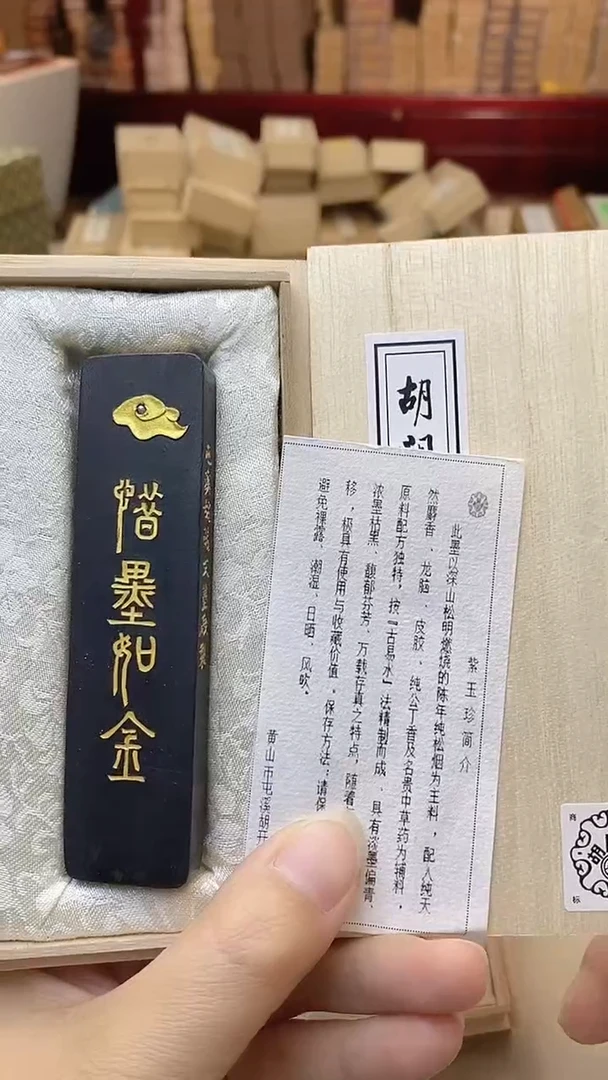 惜墨如金
胡
紫玉珍简介
此墨以深山松明燃烧的陈年纯松烟为主料，配入纯天
然麝香、龙脑、皮胶、纯公丁香及名贵中草药为辅料，
原料配方独特，按『古易水』法精制而成、具有淡墨偏青、
浓墨枯黑、馥郁芬芳、万载存真之特点，随着
移，极具有使用与收藏价值，保存方法：请保
避免裸露、潮湿、日晒、风吹。
黄山市屯溪胡开
商
胡
标